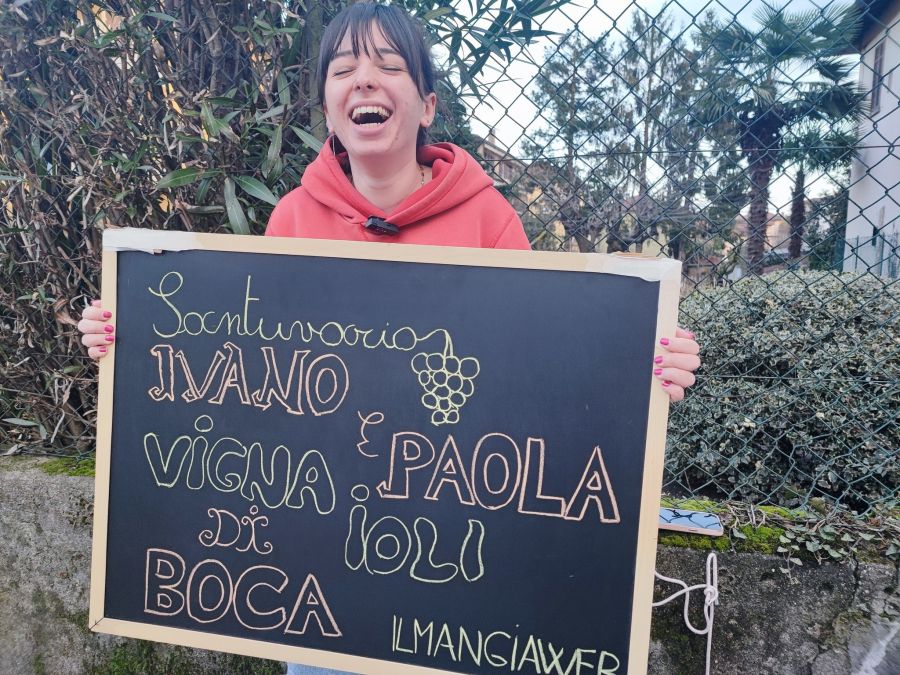 Santuvario
IVANO
ViGNA
E PAOLA
iOLi
Di
BOCA
ILMANGIAWEB